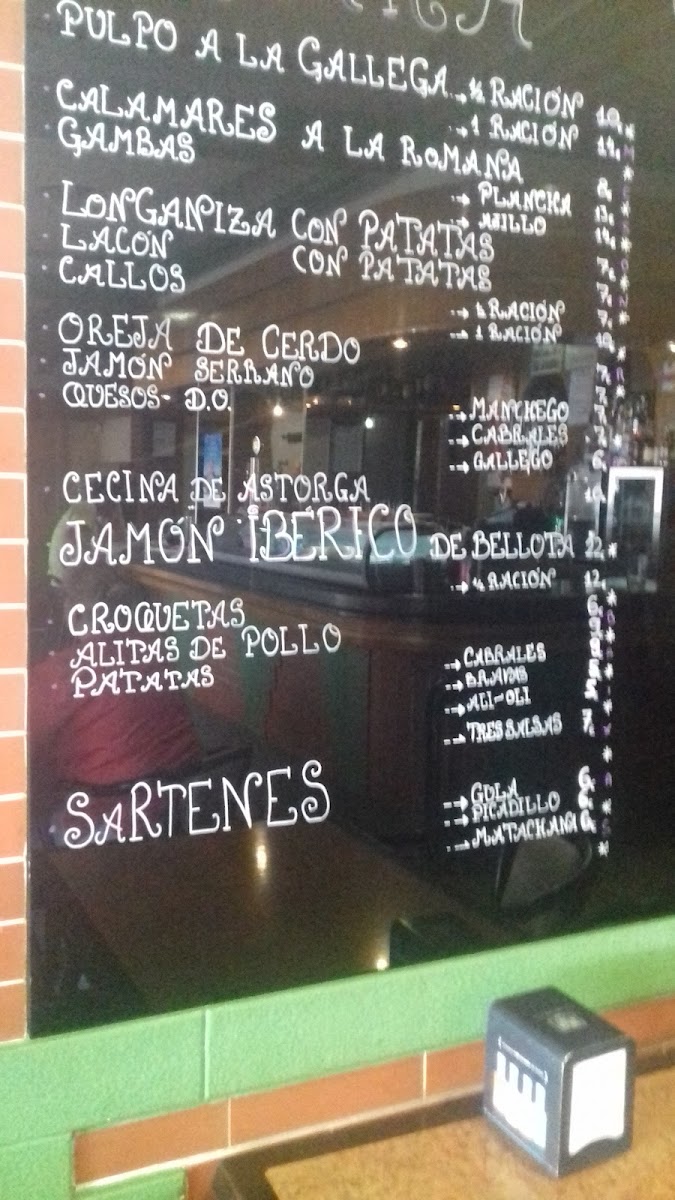 PULPO A LA GALLEGA → ½ RACIÓN 10
→ 1 RACIÓN
CALAMARES A LA ROMANA 8
GAMBAS → PLANCHA 13
→ AJILLO 14
LONGANIZA CON PATATAS 7
LACÓN CON PATATAS 7
CALLOS → ½ RACIÓN 7
→ 1 RACIÓN 10
OREJA DE CERDO 7
JAMÓN SERRANO 7
QUESOS- D.O. → MANCHEGO 7
→ CABRALES 7
→ GALLEGO 6
CECINA DE ASTORGA 10
JAMÓN IBERICO DE BELLOTA
→ ½ RACIÓN 12
CROQUETAS 6
ALITAS DE POLLO
PATATAS → CABRALES
→ BRAVAS
→ ALI-OLI
→ TRES SALSAS 7
SARTENES → GULA 6
→ PICADILLO 6
→ MATACHANA 6